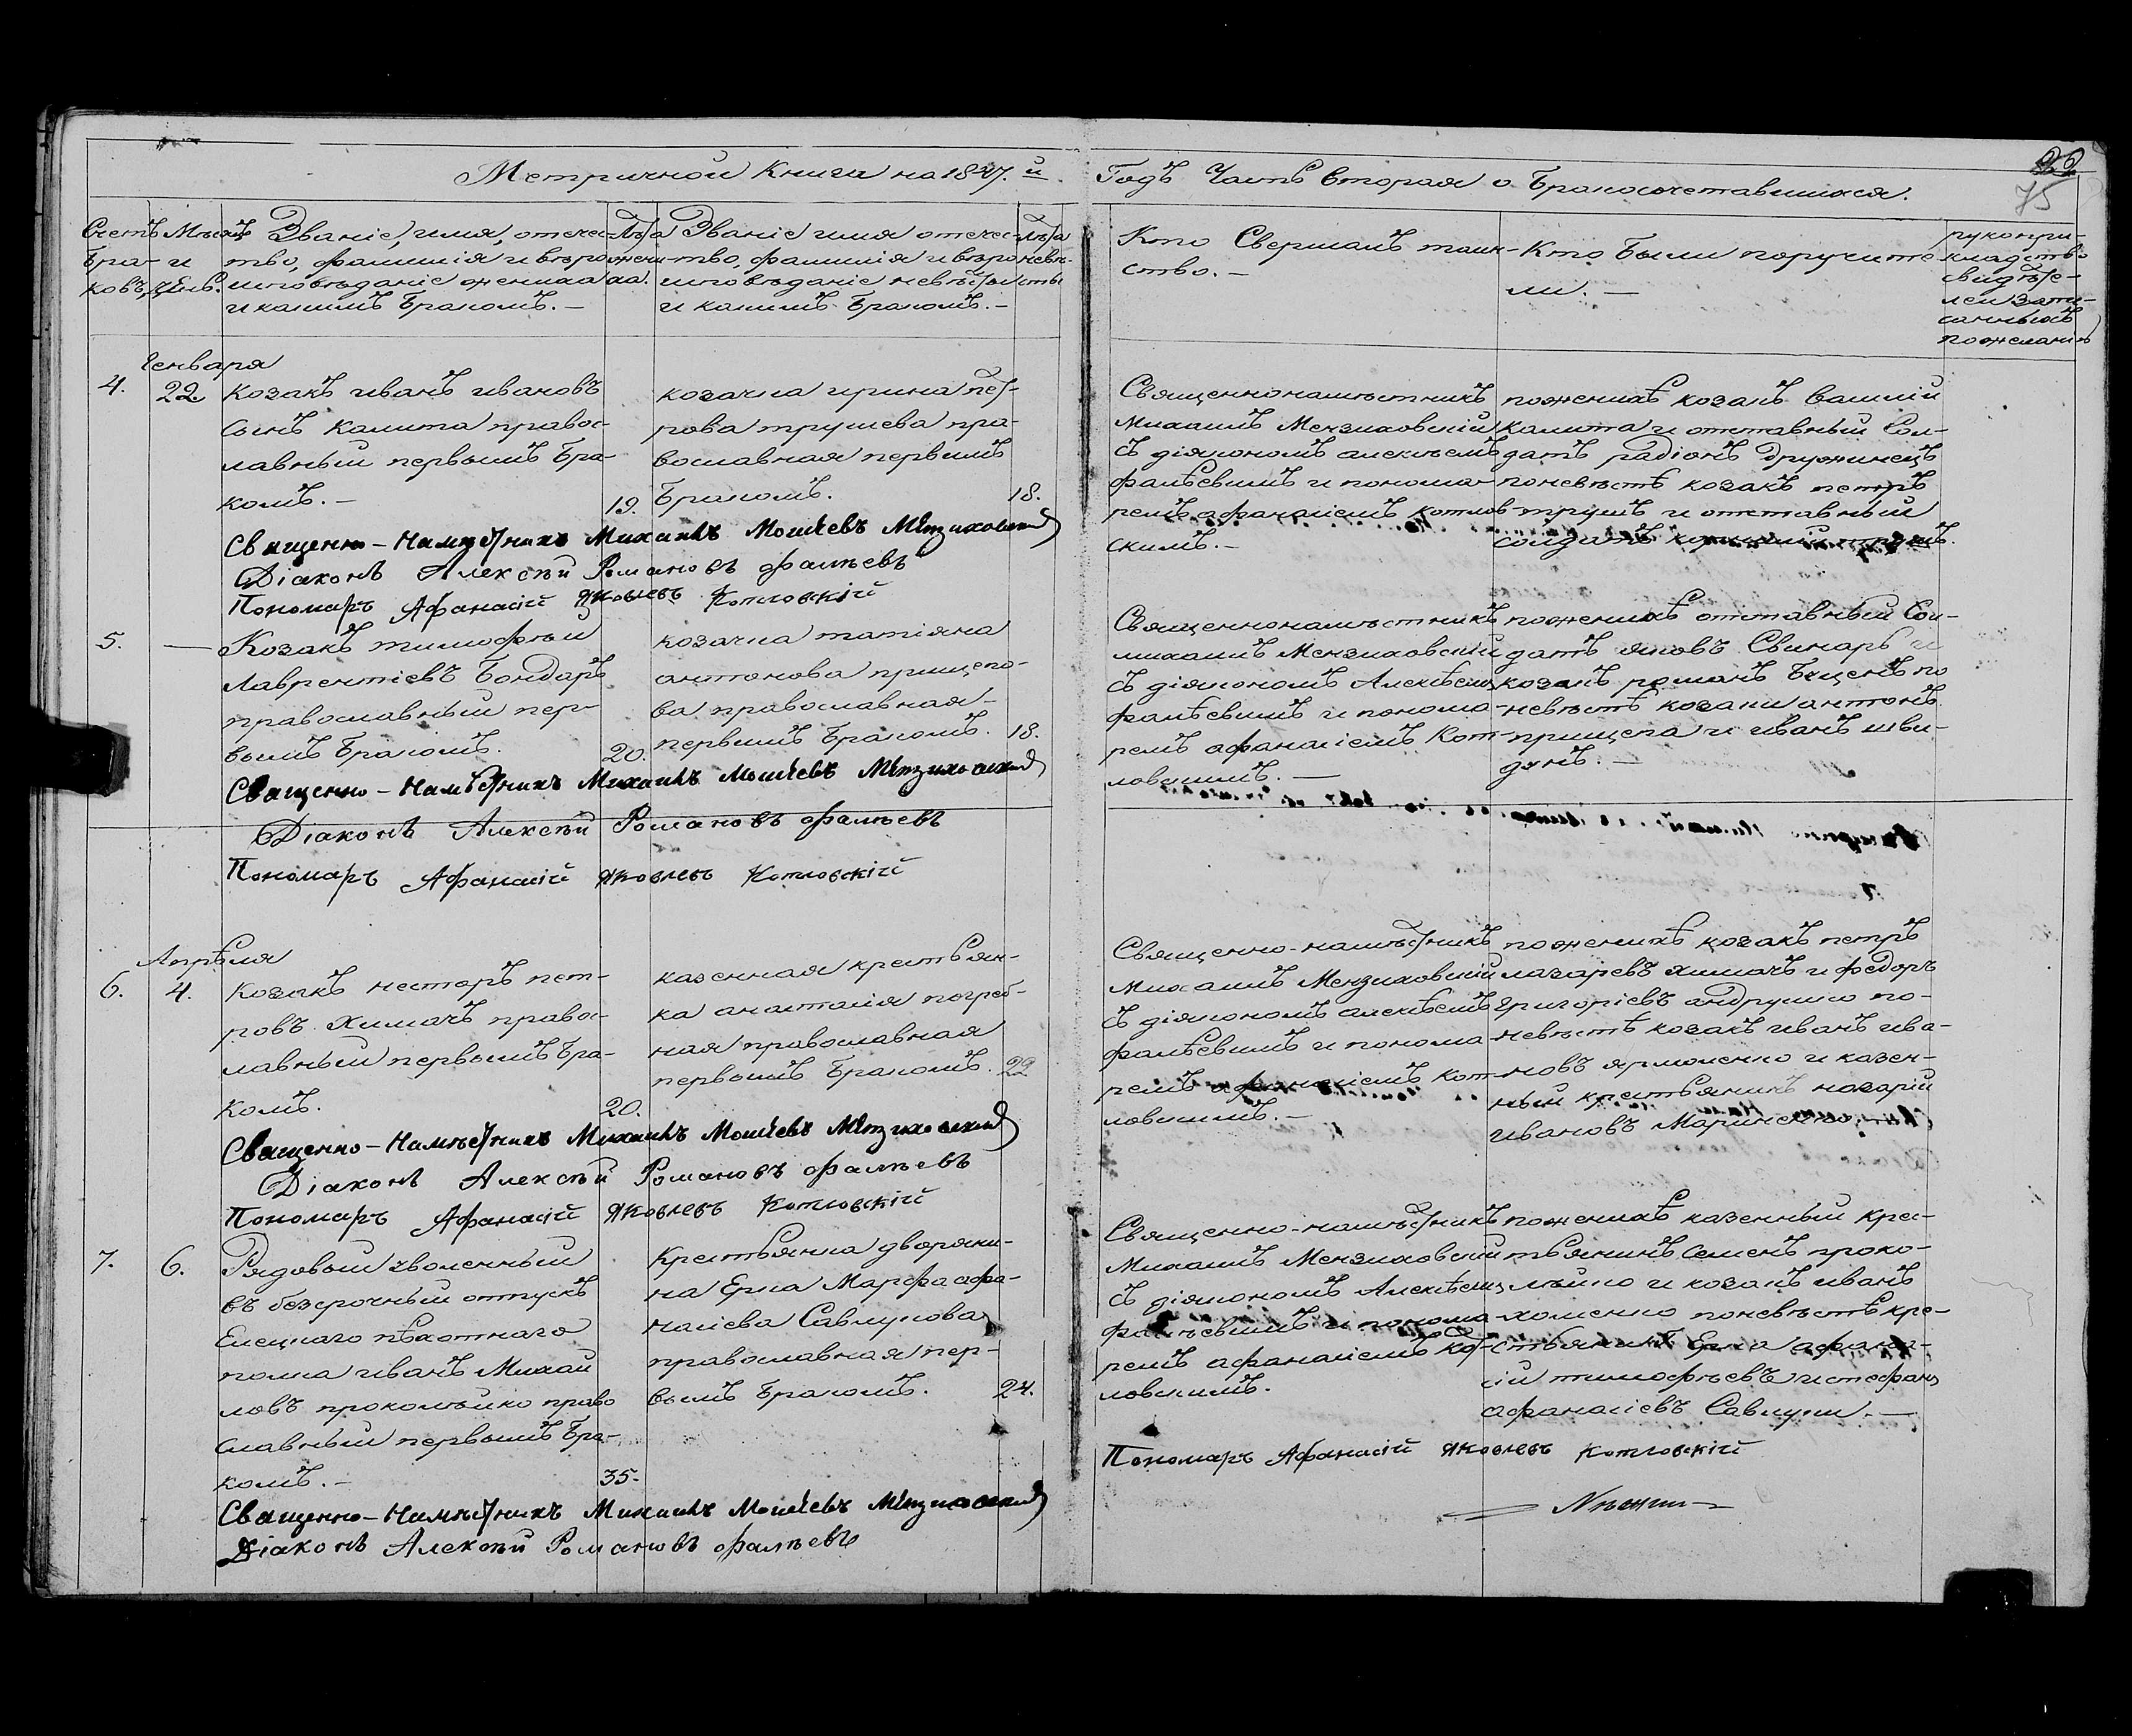 Метричной Книги на 1847.й Годъ Часть Вторая о Бракосочетавшихся.
75
Счетъ Бра-
ковъ
Мѣсяцъ и
день.
Званіе, имя, отечес-
тво, фамилія и вѣро
исповѣданіе жениха
и какимъ бракомъ. —
Лѣта
жени
ха.
Званіе имя отечес-
тво, фамилія и вѣро
исповѣданіе невѣсты
и какимъ бракомъ. —
Лѣта
невѣ-
сты
Кто Совершалъ таин-
ство. —
Кто Были поручите
ли. —
рукопри-
кладство
свидѣте-
лей запи-
санныхъ
по желанію
Генваря
4.
22.
Козакъ иванъ ивановъ
сынъ Калита правос-
лавный первымъ бра-
комъ. —
19.
козачка ирина пет-
рова трушева пра-
вославная первымъ
бракомъ.
18.
Священнонамѣстникъ
Михаилъ Мензиховскій
съ діякономъ алексѣемъ
фалѣевимъ и понома-
ремъ афанасіемъ котлов-
скимъ. —
по женихѣ козакъ василій
калита и отставный Сол-
датъ радіонъ дружинецъ
по невѣстѣ козакъ петръ
трушъ и отставный
солдатъ трушъ.
Священно-Намѣстникъ Михаилъ Моисѣевъ Мензиховскій
Діаконъ Алексѣй Романовъ Фалѣевъ
Пономаръ Афанасій Яковлевъ Котловскій
5.
—
Козакъ тимофѣй
Лаврентіевъ Бондарь
православный пер-
вымъ бракомъ.
20.
козачка татіяна
антонова прищепо-
ва православная —
первымъ бракомъ.
18.
Священнонамѣстникъ
михаилъ Мензиховскій
съ діякономъ Алексѣемъ
фалѣевимъ и понома-
ремъ афанасіемъ Кот-
ловскимъ. —
по женихѣ отставный Сол-
датъ яковъ Свинарь и
козакъ романъ Биценъ по
невѣстѣ козаки антонъ
прищепа и иванъ шви-
дунъ. —
Священно-Намѣстникъ Михаилъ Моисѣевъ Мензиховскій
Діаконъ Алексѣй Романовъ Фалѣевъ
Пономаръ Афанасій Яковлевъ Котловскій
Апрѣля
6.
4.
Козакъ несторъ пет-
ровъ Химачъ правос-
лавный первымъ бра-
комъ.
20.
казенная крестьян-
ка анастасія погреб-
ная православная
первымъ бракомъ.
22
Священно-намѣстникъ
Михаилъ Мензиховскій
съ діякономъ алексѣемъ
фалѣевимъ и понома
ремъ афанасіемъ Кот-
ловскимъ. —
по женихѣ козакъ петръ
лазаревъ химачъ и федоръ
григоріевъ андрушко по-
невѣстѣ козакъ иванъ ива-
новъ ярмоленко и казен-
ный крестьянинъ назарій
ивановъ Мариненко.
Священно-Намѣстникъ Михаилъ Моисѣевъ Мензиховскій
Діаконъ Алексѣй Романовъ Фалѣевъ
Пономаръ Афанасій Яковлевъ Котловскій
7.
6.
Рядовый уволенный
въ безсрочный отпускъ
Елецкаго пѣхотнаго
полка иванъ Михай
ловъ прокопѣйко право
славный первымъ бра-
комъ. —
35.
Крестьянка дворяни-
на Ерка Марфа афа-
насіева Савлукова
православная пер-
вымъ бракомъ.
24.
Священно-намѣстникъ
Михаилъ Мензиховскій
съ діякономъ Алексѣемъ
фалѣевимъ и понома
ремъ афанасіемъ Кот-
ловскимъ.
по женихѣ казенный крес-
тьянинъ Семенъ проко-
пѣйко и козакъ иванъ
хоменко по невѣстѣ кре-
стьяники Ерка афана-
сій тимофѣевъ и стефанъ
афанасіевъ Савлуки. —
Священно-Намѣстникъ Михаилъ Моисѣевъ Мензиховскій
Діаконъ Алексѣй Романовъ Фалѣевъ
Пономаръ Афанасій Яковлевъ Котловскій